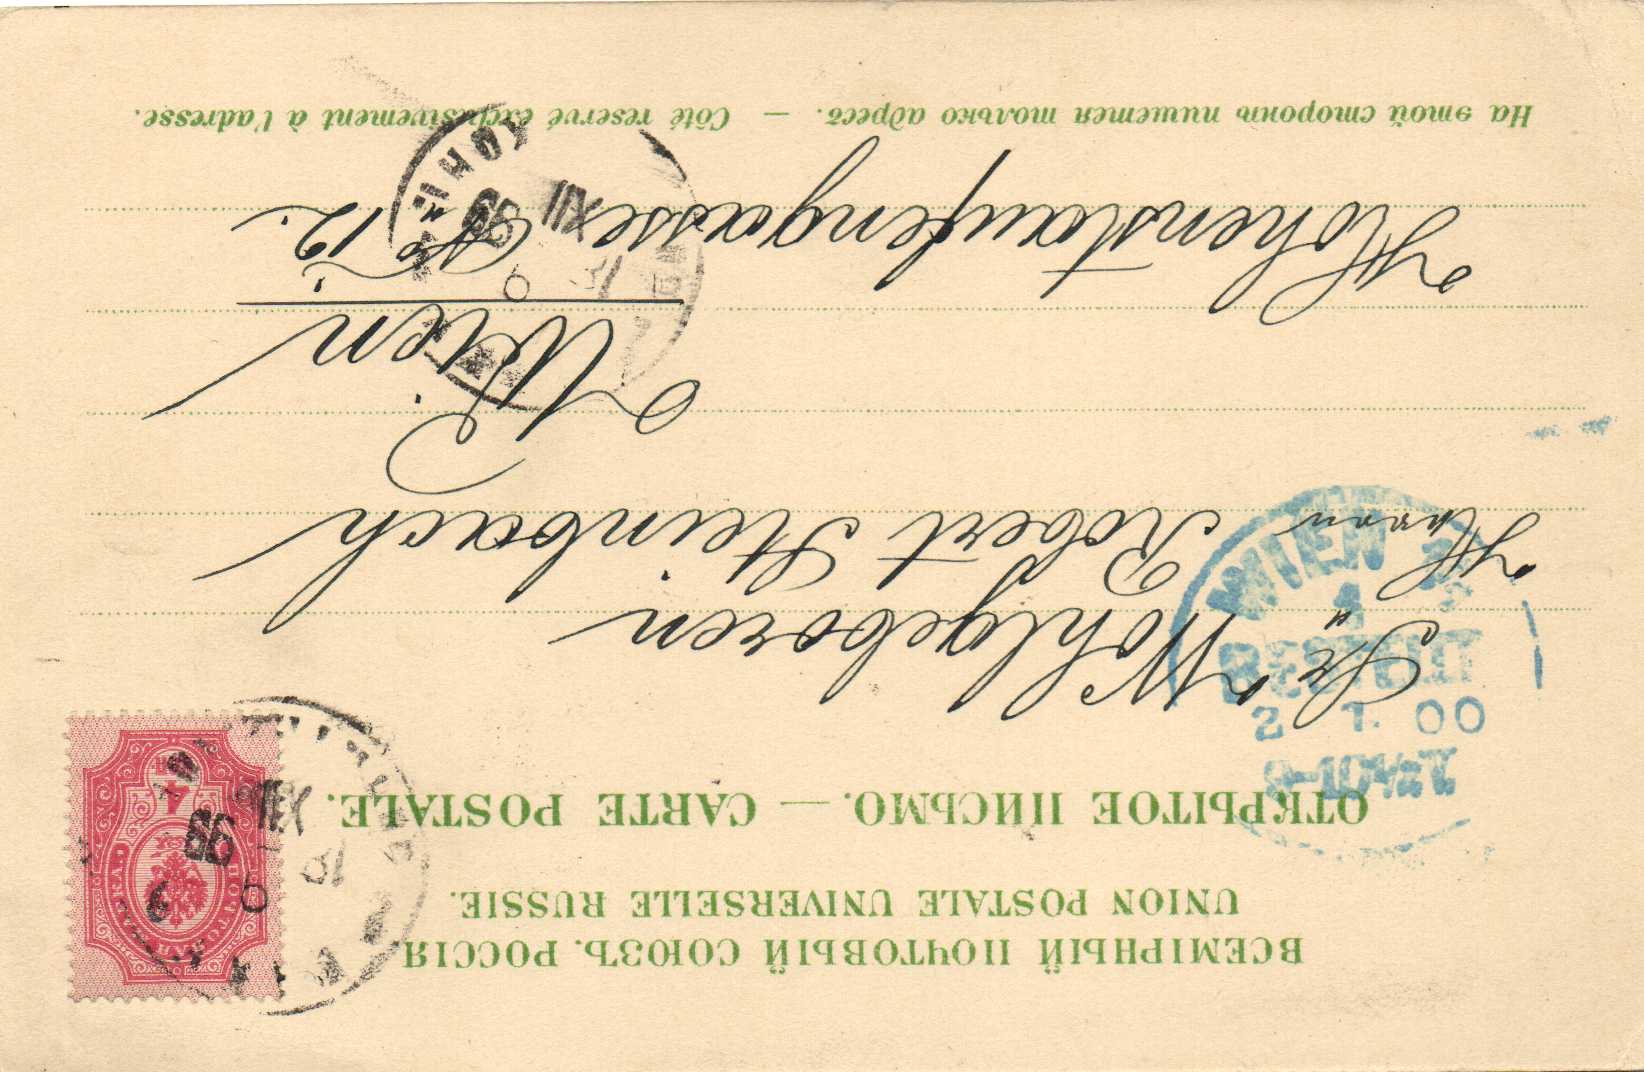 ВСЕМІРНЫЙ ПОЧТОВЫЙ СОЮЗЪ. РОССІЯ
UNION POSTALE UNIVERSELLE RUSSIE.
ОТКРЫТОЕ ПИСЬМО. — CARTE POSTALE.
Sr Wohlgeboren
Herrn Robert Steinbach
Wien
Hohenstaufengasse No 12.
На этой сторонѣ пишется только адресъ. — Côté reservé exclusivement à l'adresse.
WIEN
1
BESTELLT
2 1. 00
XII
99
XII
99
4